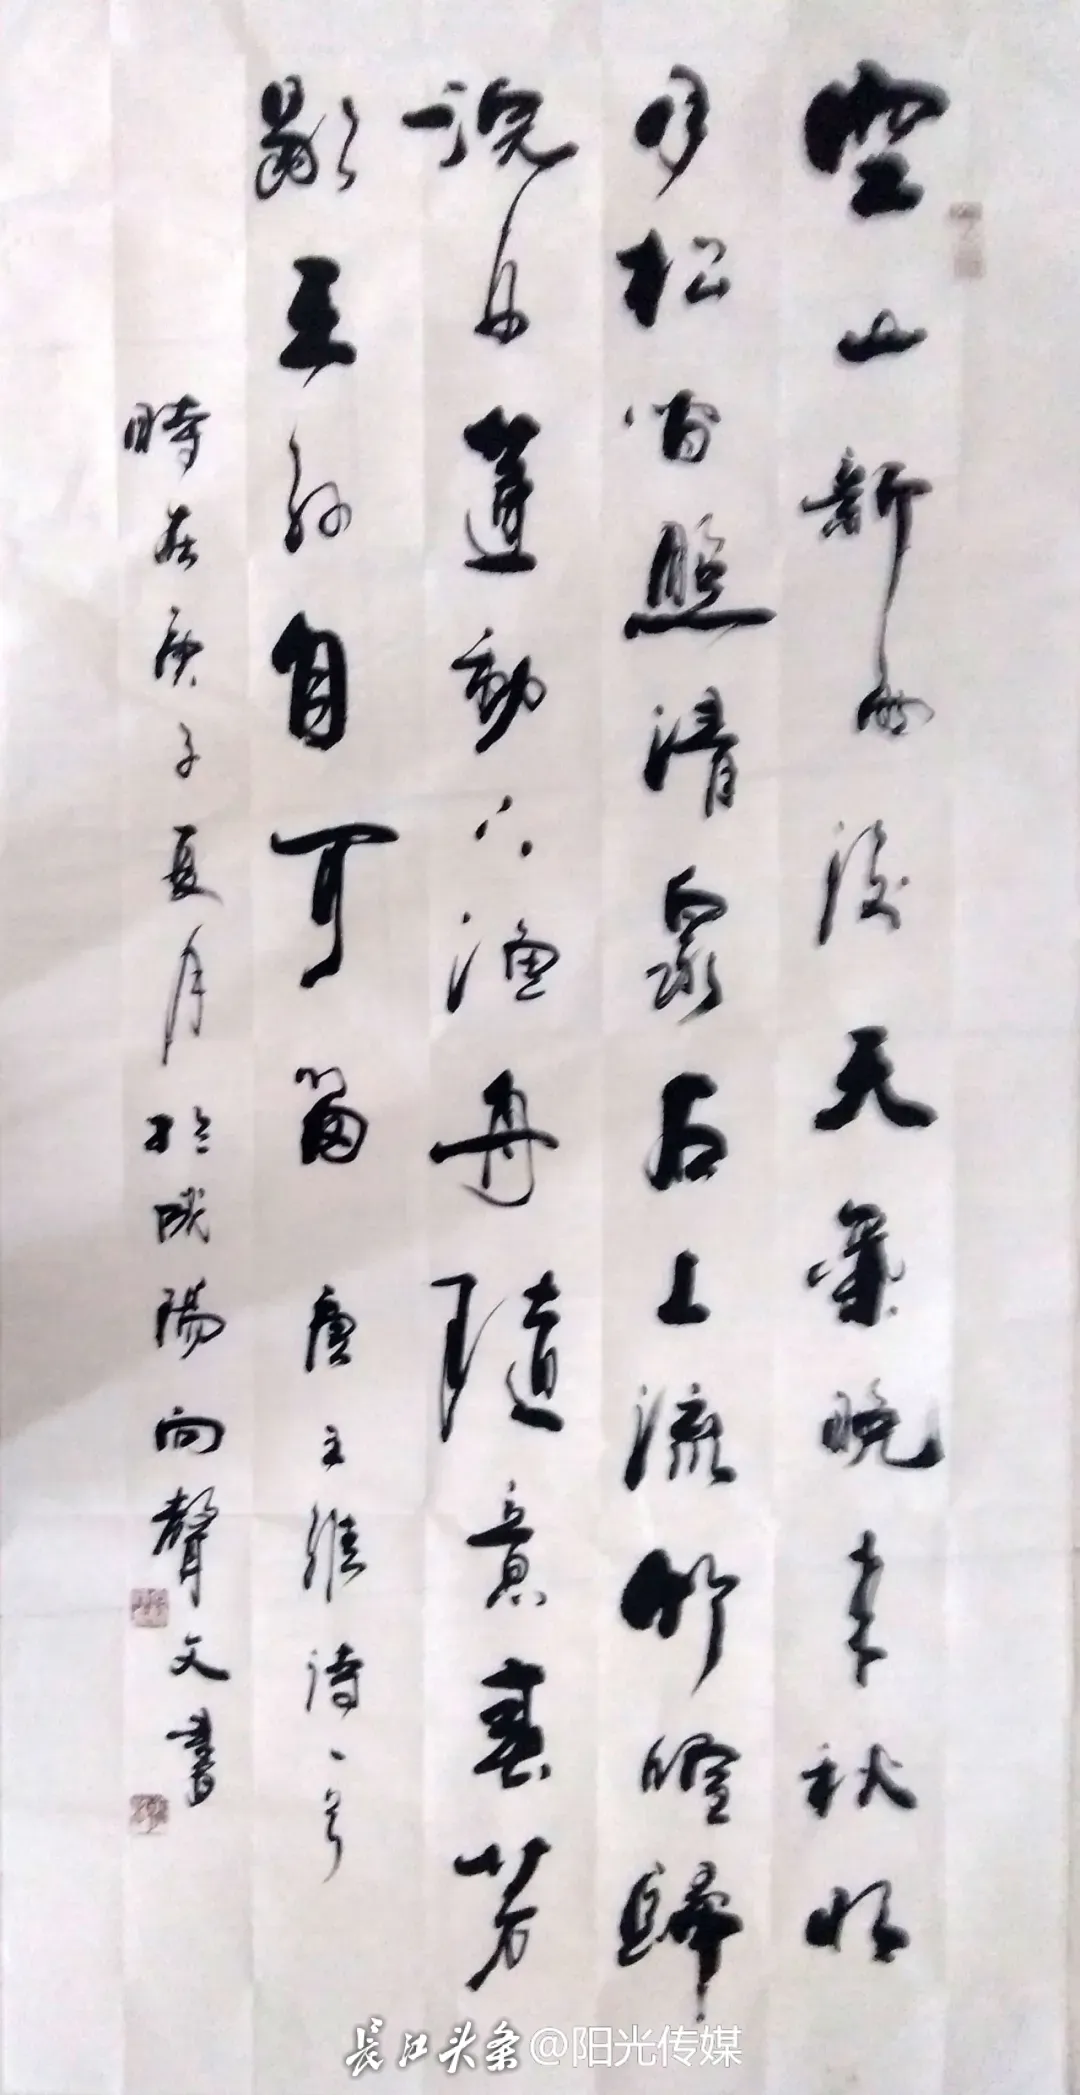 空山新雨後天氣晚来秋明
月松间照清泉石上流竹喧歸
浣女蓮動下漁舟隨意春芳
歇王孙自可留 唐王維诗一首
時在庚子夏月於陽向聲文書
长江头条@阳光传媒